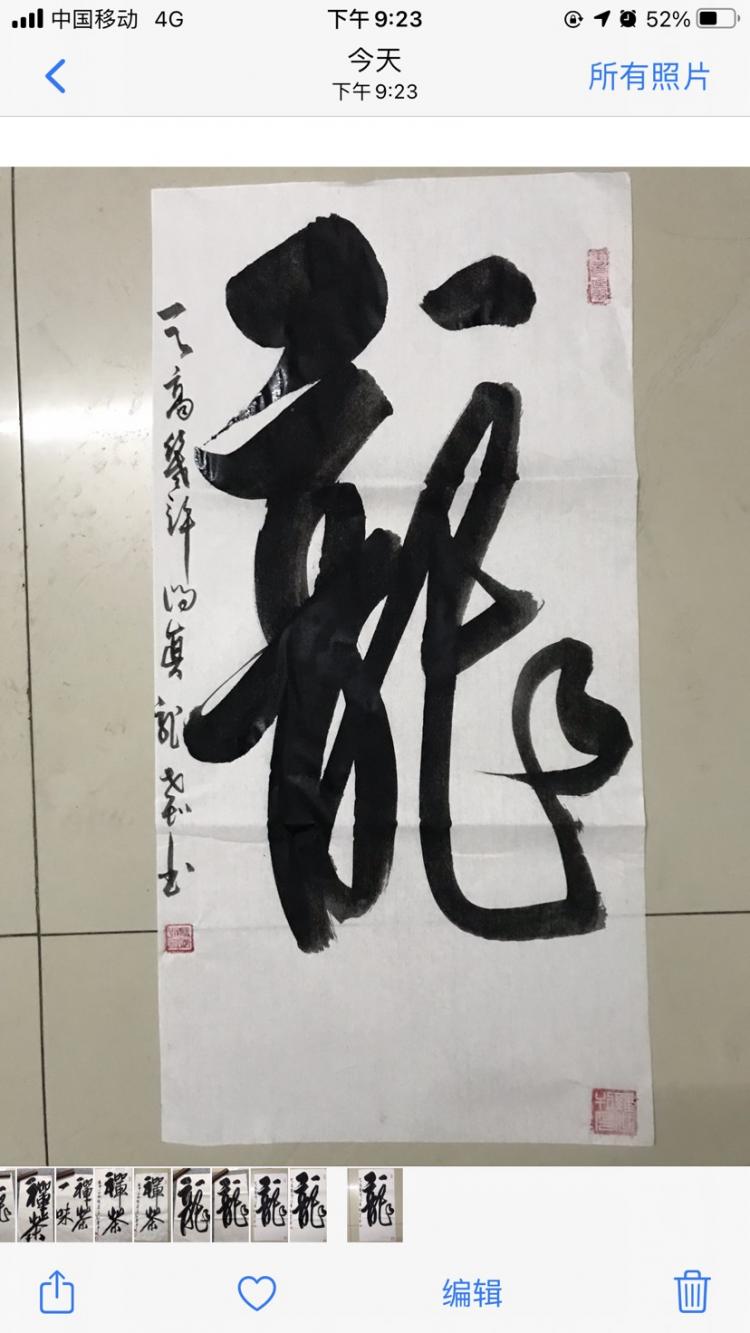 中国移动 4G
下午9:23
52%
今天
下午9:23
所有照片
龍
天高幾許问真龍
书
编辑